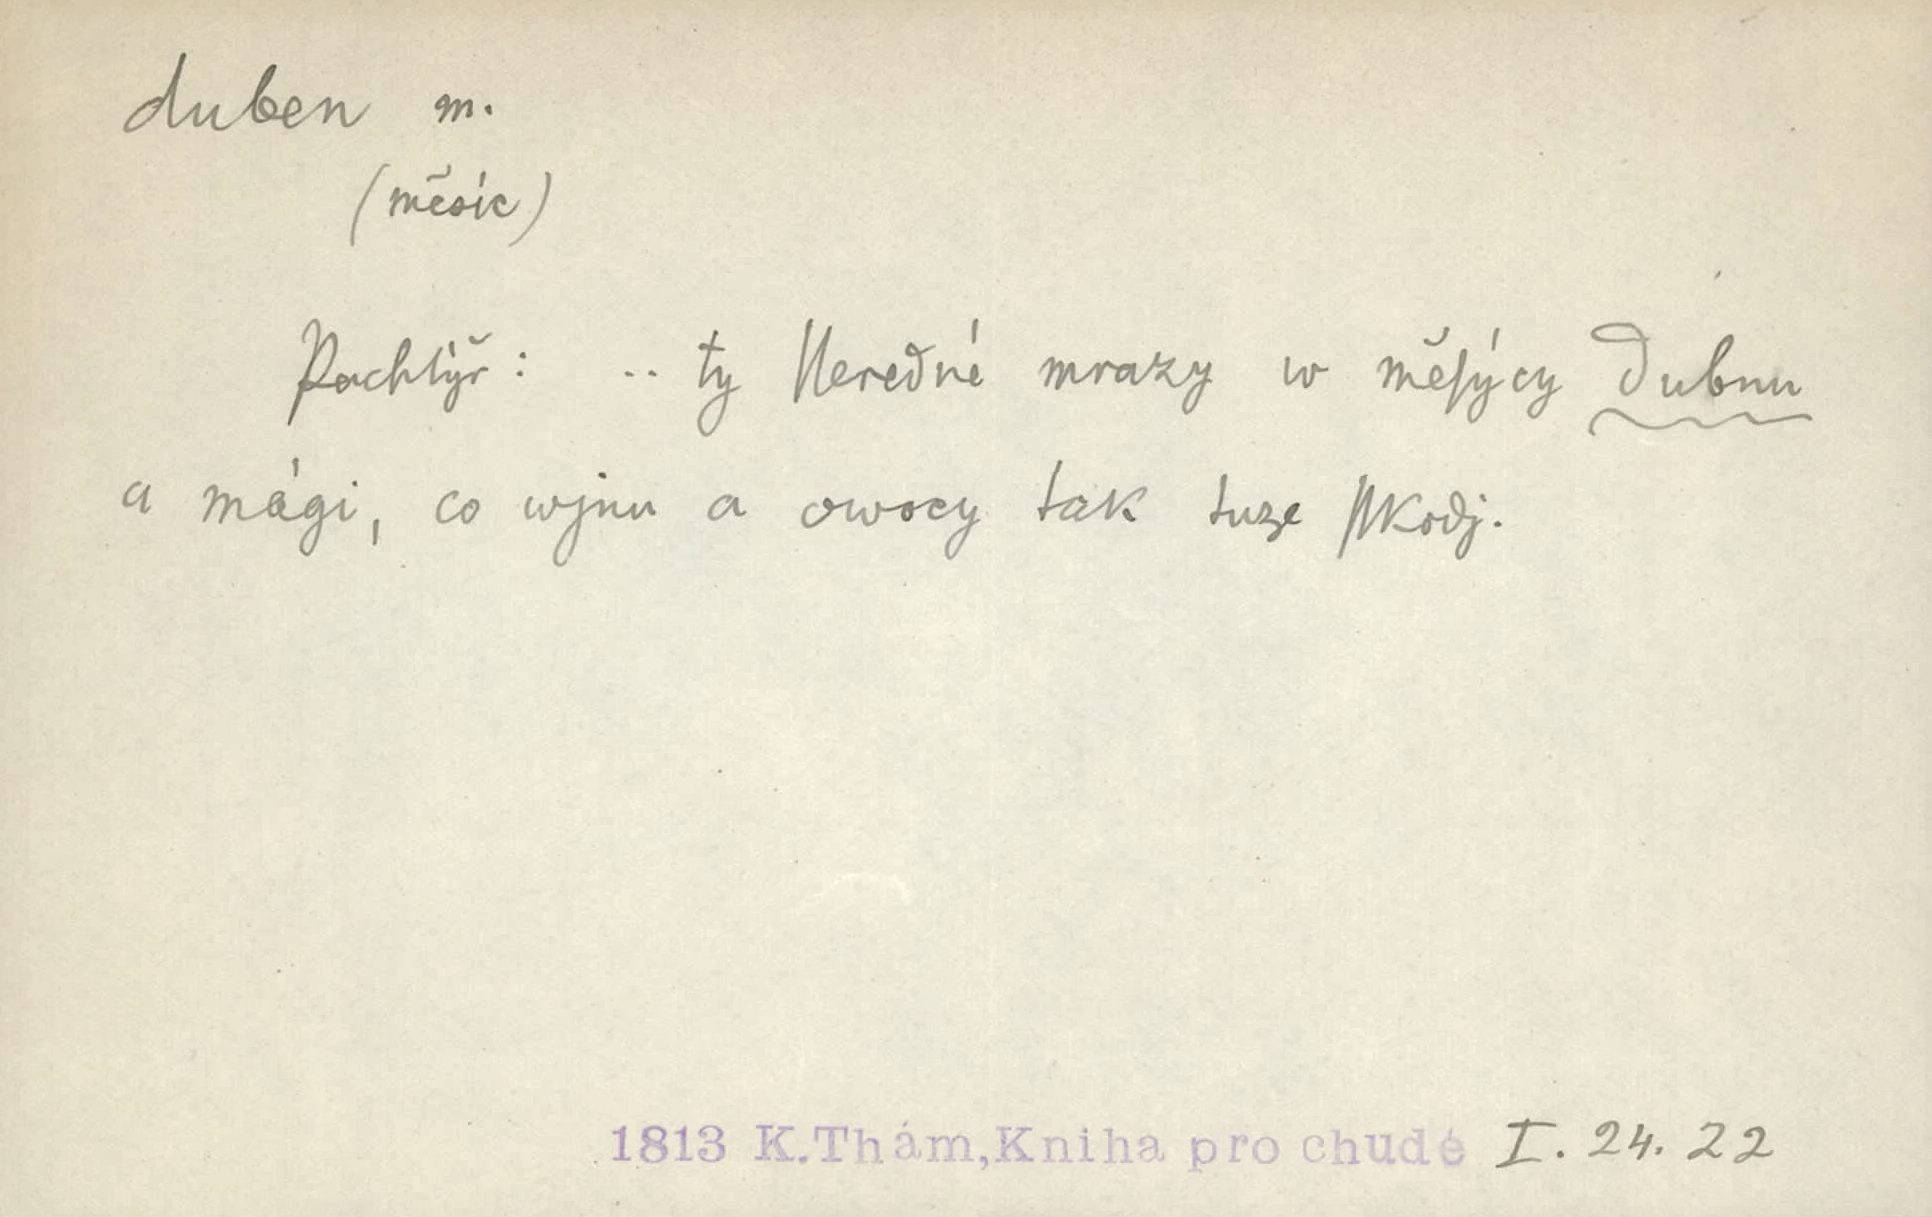 duben m.
(měsíc)
Pachtýř: .. ty ſſeredné mrazy w měſýcy Dubnu
a mági, co wjnu a owocy tak tuze ſſkodj.
1813 K.Thám,Kniha pro chudé I. 24. 22